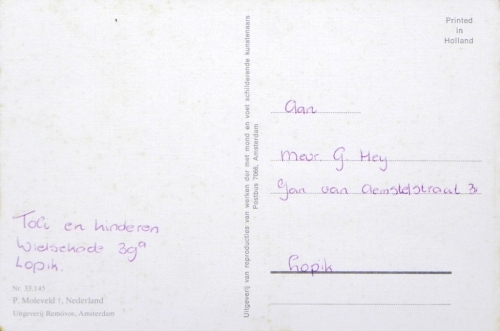 Printed
in
Holland
Uitgeverij van reproducties van werken der met mond en voet schilderende kunstenaars
Postbus 7068, Amsterdam
Aan
Mevr. G. Hey
Jan van
Lopik
en kinderen
39a
Lopik.
Nr. 33.145
P. Moleveld †, Nederland
Uitgeverij Remivoe, Amsterdam